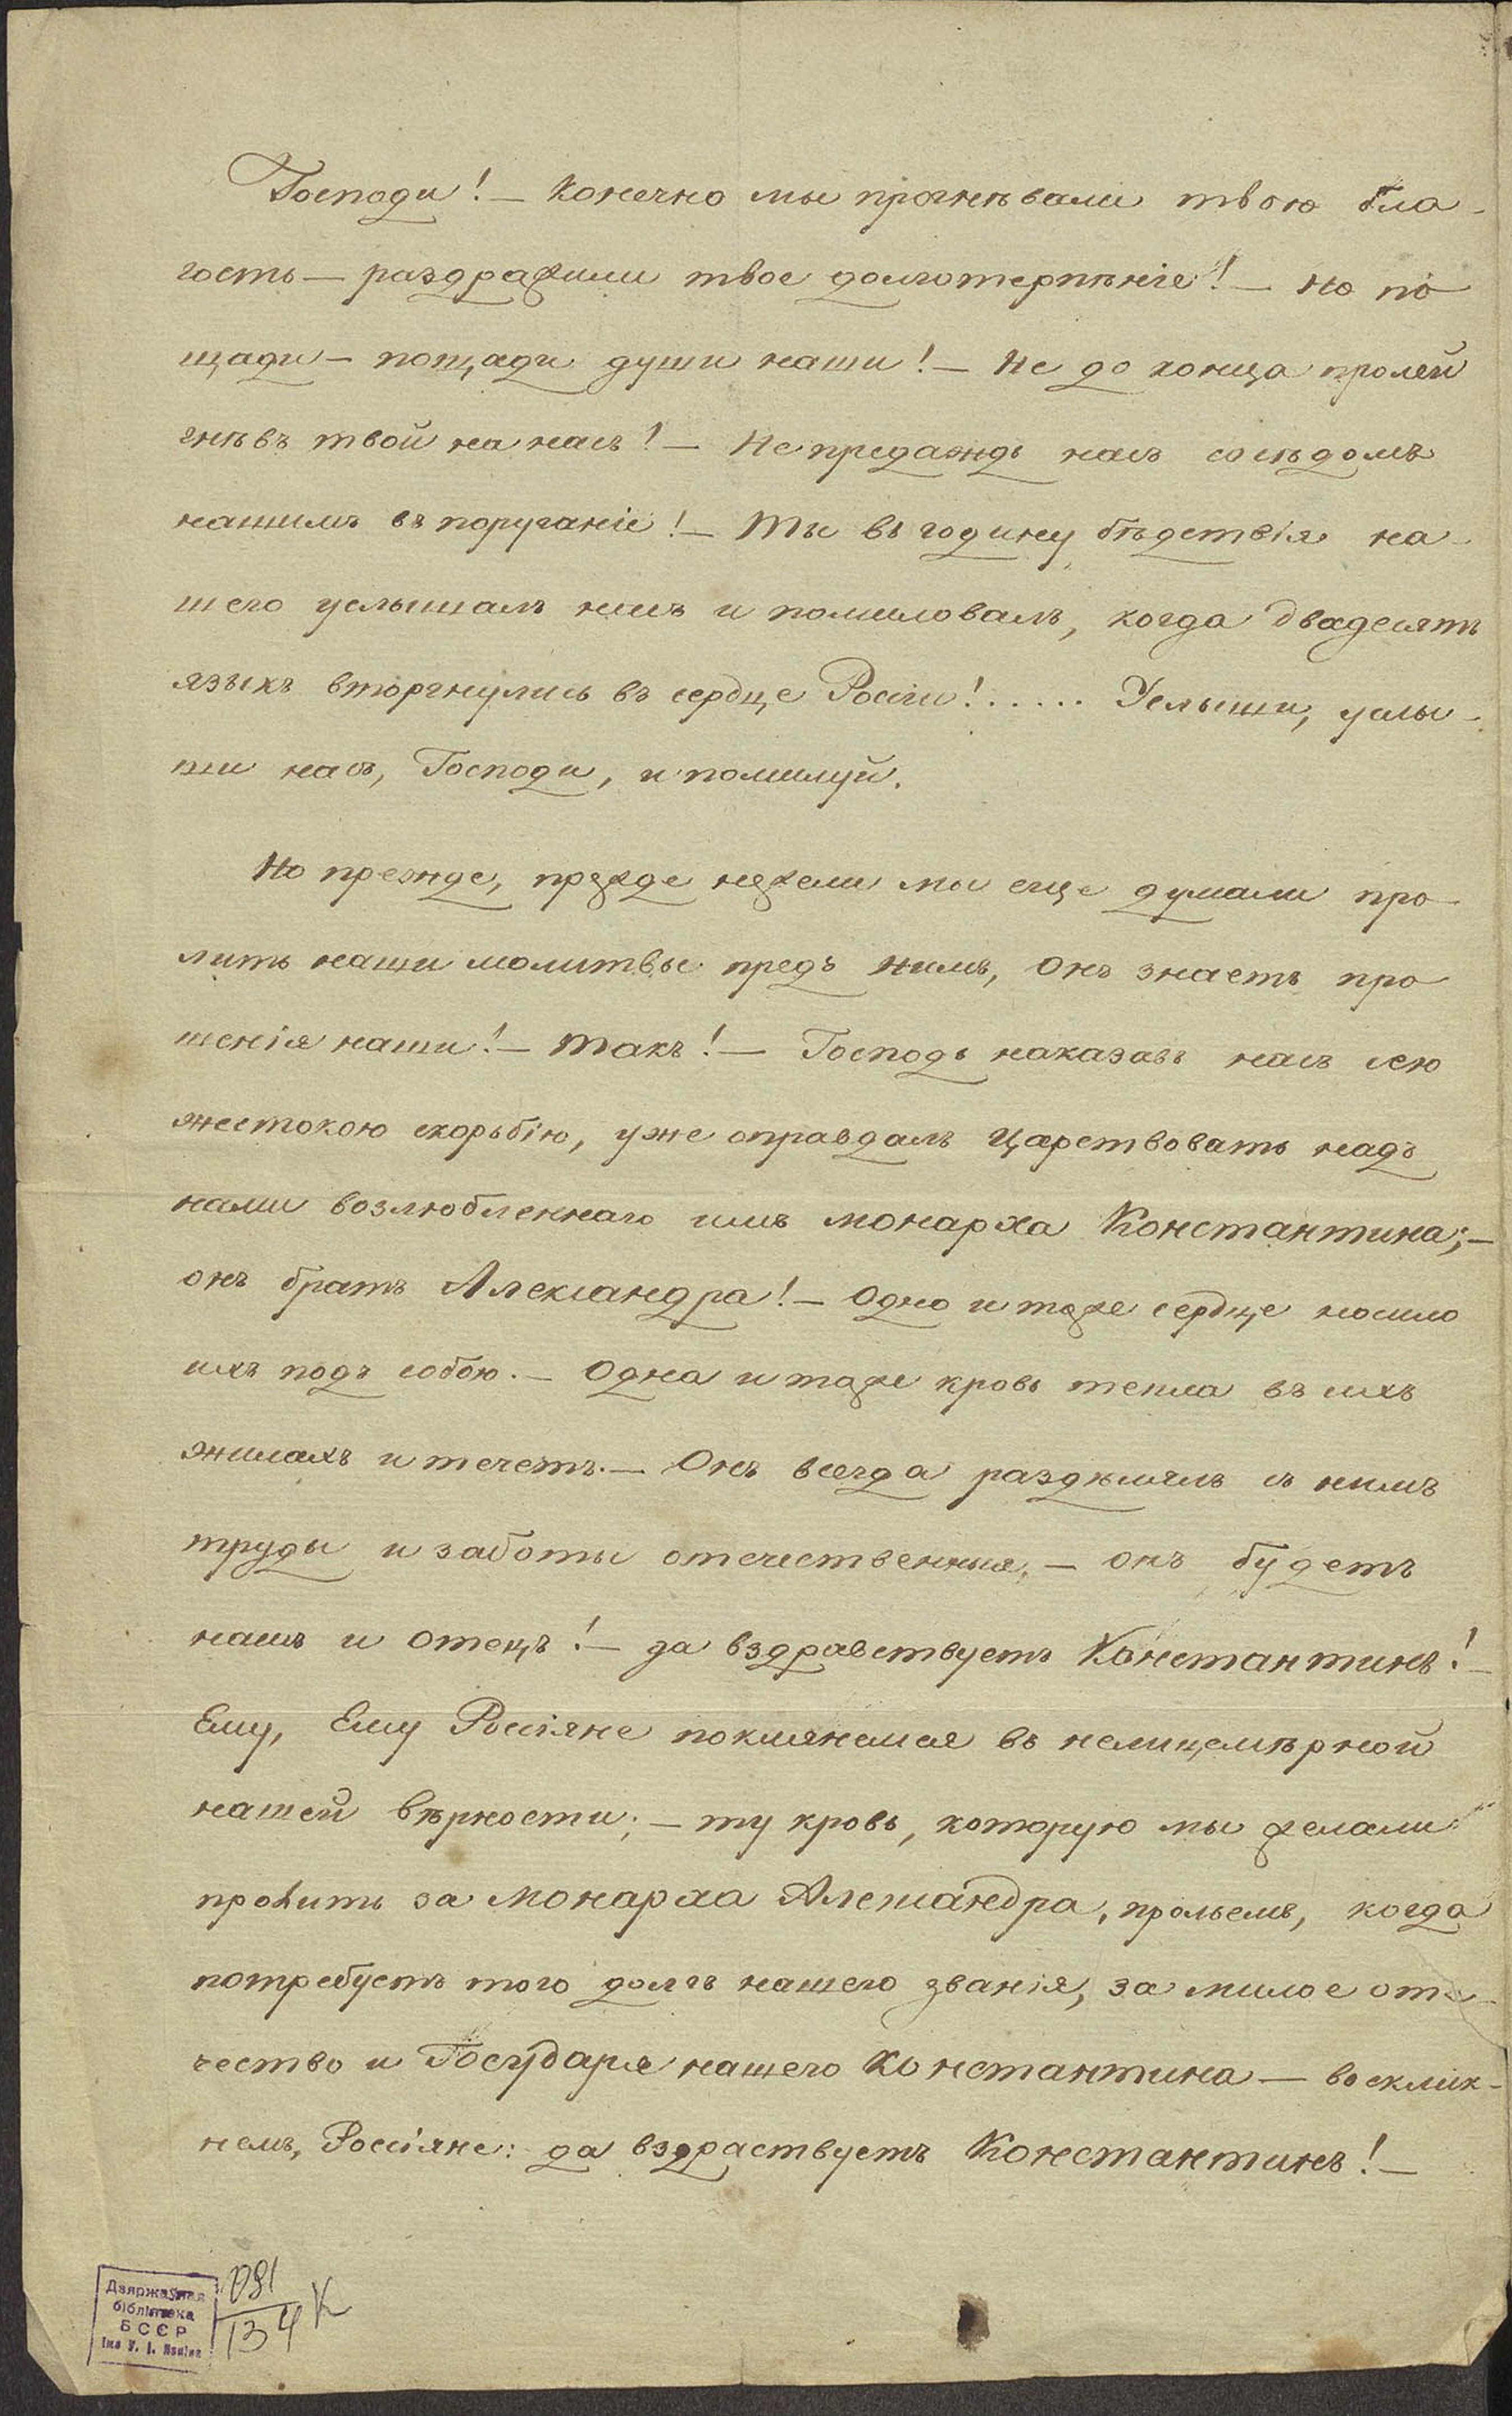 Господи! — Конечно мы прогнѣвали твою бла-
гость — раздражили твое долготерпѣніе! — Но по
щади — пощади души наши! — Не до конца пролей
гнѣвъ твой на насъ! — Не предаждь насъ сосѣдомъ
нашимъ въ поруганіе! — Ты въ годину бѣдствія на-
шего услышалъ насъ и помиловалъ, когда двадесять
языкъ вторгнулись въ сердце Россіи!..... Услыши, услы-
ши насъ, Господи, и помилуй.
Но прежде, прежде нежели мы еще думали про-
лить наши молитвы предъ нимъ, Онъ знаетъ про
шенія наши! — Такъ! — Господь наказавъ насъ сею
жестокою скорьбію, уже оправдалъ Царствовать надъ
нами возлюбленнаго имъ монарха Константина; —
онъ братъ Александра! — Одно и тоже сердце носило
ихъ подъ собою. — Одна и таже кровь текла въ ихъ
жилахъ и течетъ. — Онъ всегда раздѣлялъ съ нимъ
труды и заботы отечественныя, — онъ будетъ
нашъ и отецъ! — да вздравствуетъ Константинъ! —
Ему, Ему Россіяне поклянемся въ нелицемѣрной
нашей вѣрности; — ту кровь, которую мы желали
пролить за Монарха Александра, прольемъ, когда
потребуетъ того долгъ нашего званія, за милое оте-
чество и Государя нашего Константина — восклик-
немъ, Россіяне: да вздраствуетъ Константинъ! —
Дзяржаўная
бібліятэка
БССР
імя У. І. Леніна
091
134 К